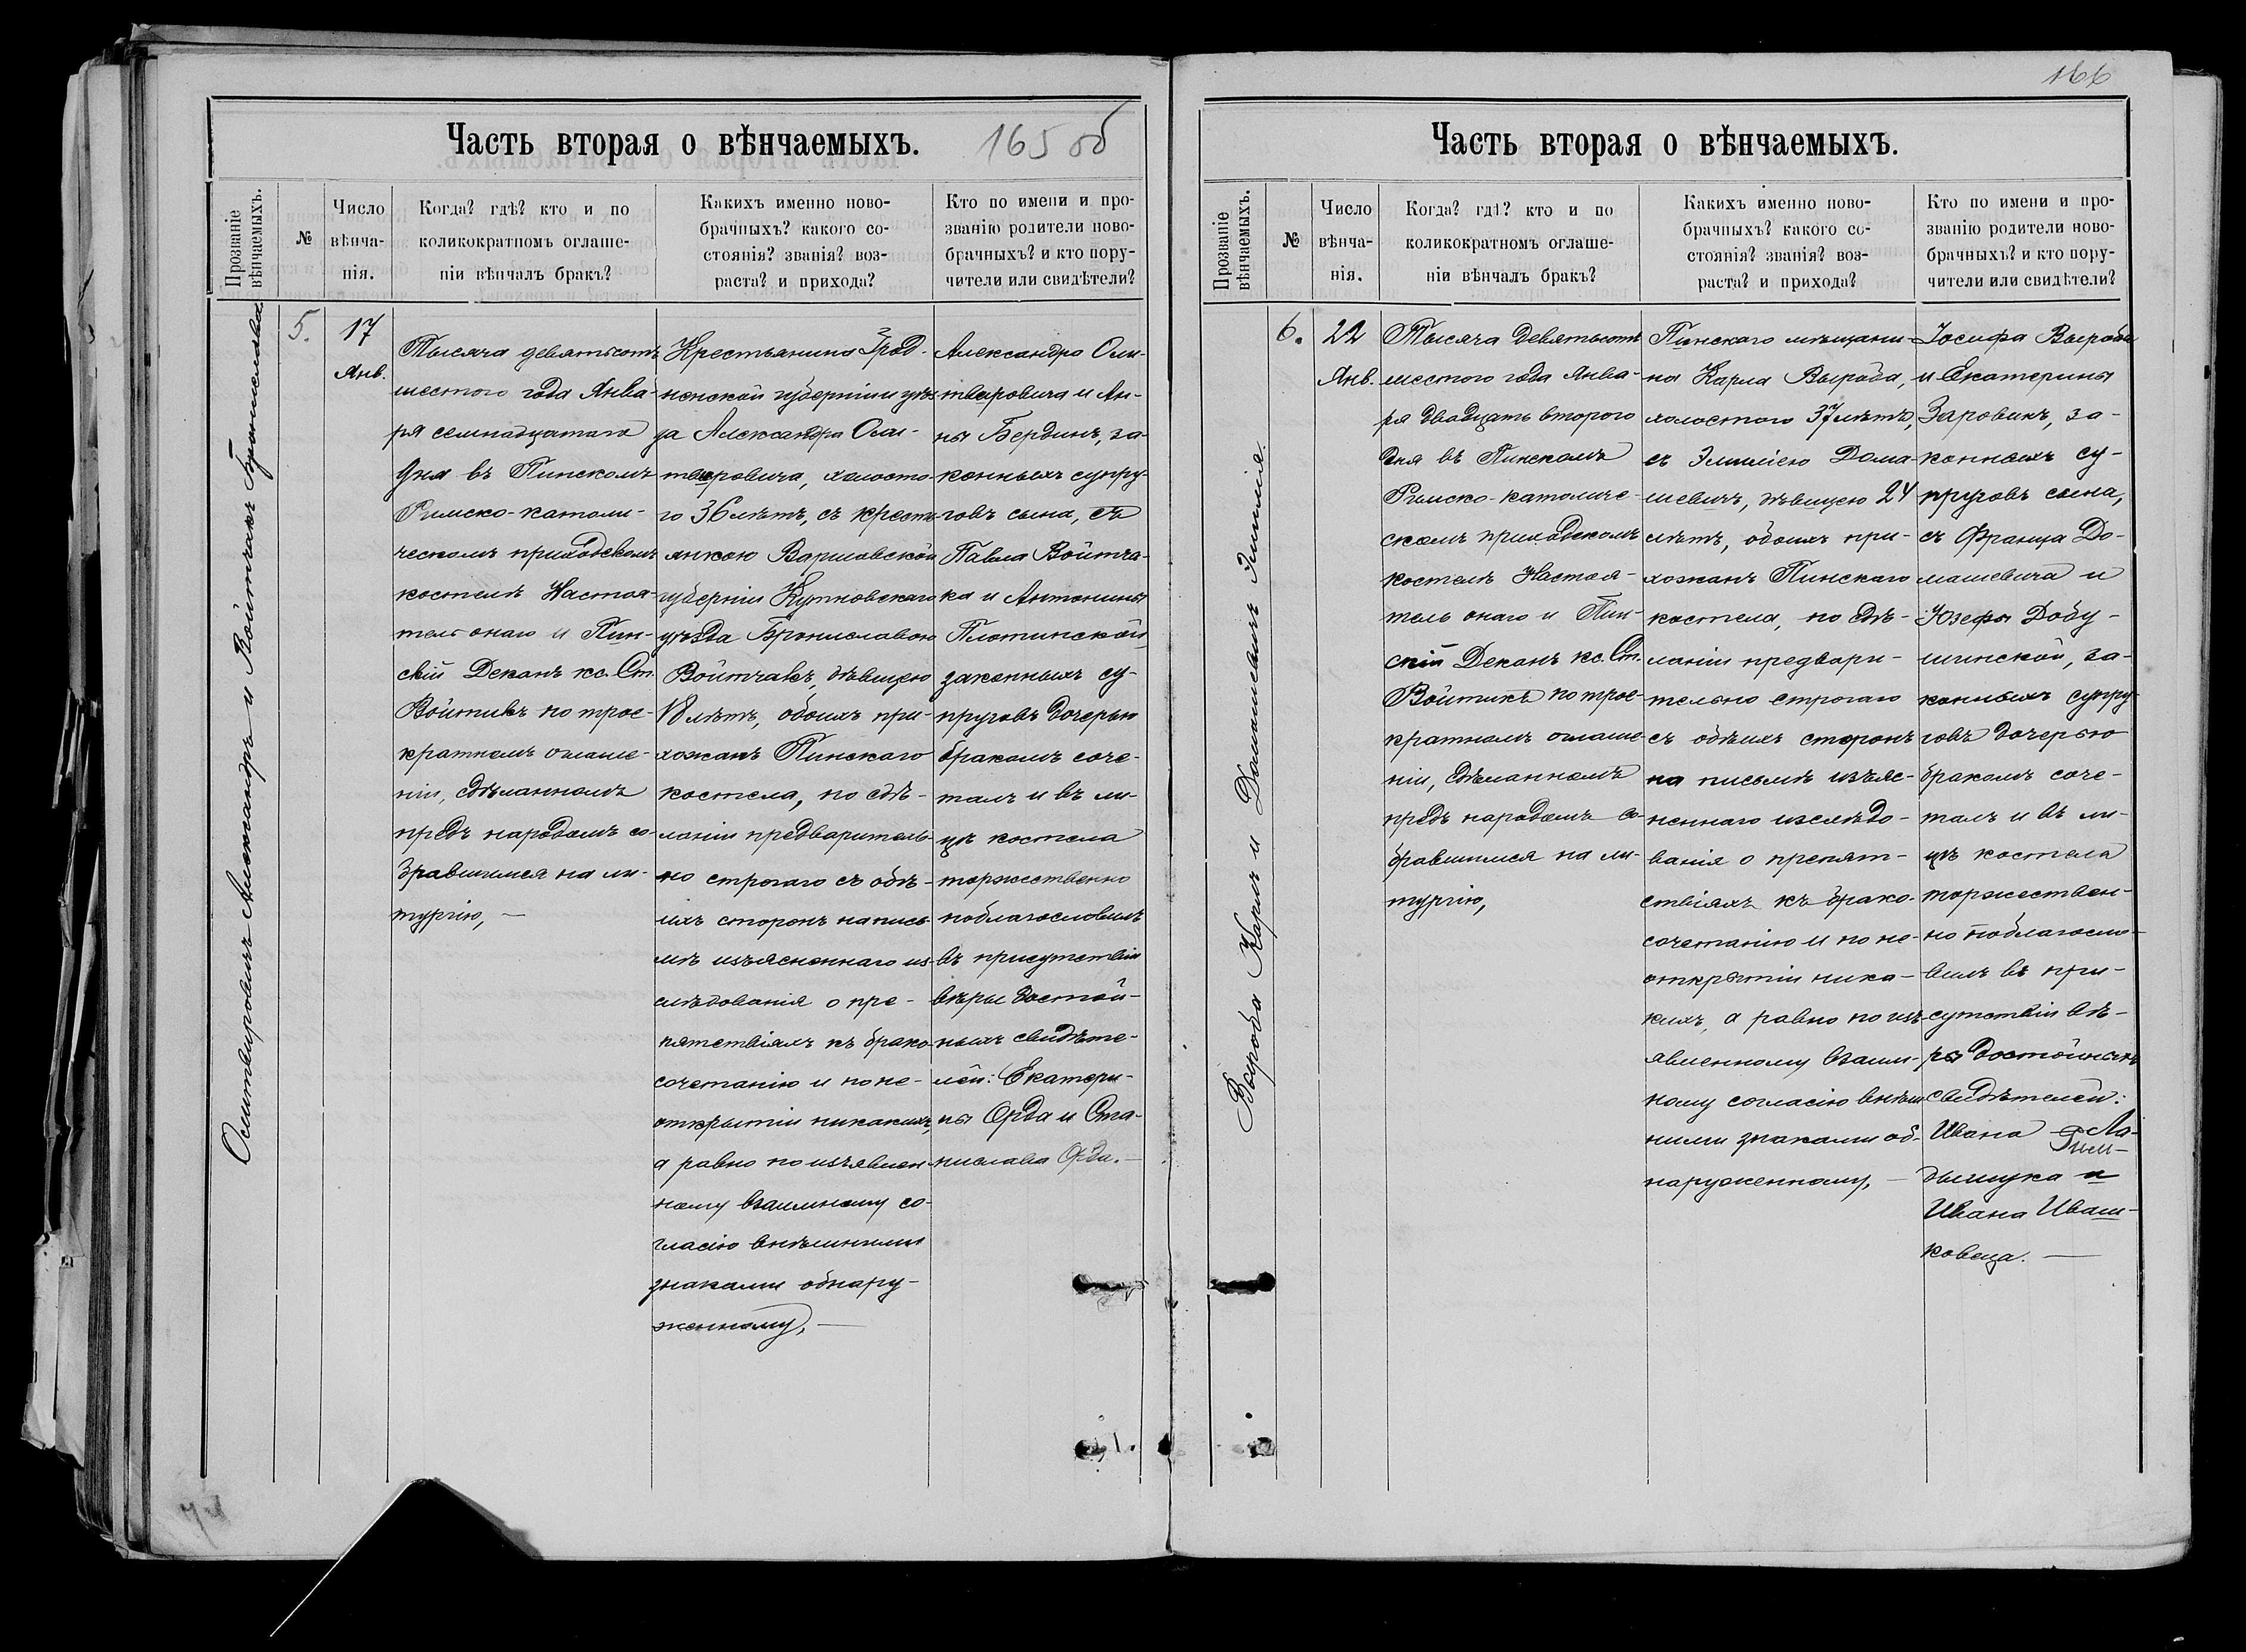 165 об
Часть вторая о вѣнчаемыхъ.
Прозваніе вѣнчаемыхъ.
№
Число вѣнча-
нія.
Когда? гдѣ? кто и по
коликократномъ оглаше-
ніи вѣнчалъ бракъ?
Каких​ъ именно ново-
брачныхъ? какого со-
стоянія? званія? воз-
раста? и прихода?
Кто по имени и про-
званію родители ново-
брачныхъ? и кто пору-
чители или свидѣтели?
Александръ и Войтчакъ Бронислава
5.
17
Янв.
Тысяча девятьсотъ
шестого года Янва-
ря семнадцатаго
дня въ Пинскомъ
Римско-католи-
ческомъ приходскомъ
костелѣ Настоя-
тель онаго и Пин-
скій Деканъ кс. Ст.
Войтикъ по трое-
кратномъ оглаше-
ніи, сдѣланномъ
предъ народомъ со-
бравшимся на ли-
тургію, —
Крестьянина Грод-
ненской губерніи уѣз-
да Александра
холосто-
го 36 лѣтъ, съ кресть-
янкою Варшавской
губерніи Кутновскаго
уѣзда Брониславою
Войтчакъ, дѣвицею
18 лѣтъ, обоихъ при-
хожанъ Пинскаго
костела, по сдѣ-
ланіи предваритель-
но строгаго съ обѣ-
ихъ сторонъ на пись-
мѣ изъясненнаго из-
слѣдованія о пре-
пятствіяхъ къ брако-
сочетанію и по не-
открытіи никакихъ,
а равно по изъявлен-
ному взаимному со-
гласію внѣшними
знаками обнару-
женному, —
Александра
и Ан-
ны за-
конныхъ супру-
говъ сына, съ
Павла Войтча-
ка и Антонины
Плотинской
законныхъ су-
пруговъ дочерью
бракомъ соче-
талъ и въ ли-
цѣ костела
торжественно
поблагословилъ
въ присутствіи
вѣры достой-
ныхъ свидѣте-
лей: Екатери-
ны Орда и Ста-
нислава Орда. —
166
Часть вторая о вѣнчаемыхъ.
Прозваніе вѣнчаемыхъ.
№
Число
вѣнча-
нія.
Когда? гдѣ? кто и по
коликократномъ оглаше-
ніи вѣнчалъ бракъ?
Какихъ именно ново-
брачныхъ? какого со-
стоянія? званія? воз-
раста? и прихода?
Кто по имени и про-
званію родители ново-
брачныхъ? и кто пору-
чители или свидѣтели?
Выроба Карлъ и Домашевичъ Эмилія.
6.
22
Янв.
Тысяча девятьсотъ
шестого года Янва-
ря двадцать второго
дня въ Пинскомъ
Римско-католиче-
скомъ приходскомъ
костелѣ Настоя-
тель онаго и Пин-
скій Деканъ кс. Ст.
Войтикъ по трое-
кратномъ оглаше-
ніи, сдѣланномъ
предъ народомъ со-
бравшимся на ли-
тургію,
Пинскаго мѣщани-
на Карла Выроба,
холостого 37 лѣтъ,
съ Эмиліею Дома-
шевичъ, дѣвицею 24
лѣтъ, обоихъ при-
хожанъ Пинскаго
костела, по сдѣ-
ланіи предвари-
тельно строгаго
съ обѣихъ сторонъ
на письмѣ изъяс-
неннаго изслѣдо-
ванія о препят-
ствіяхъ къ брако-
сочетанію и по не-
открытіи ника-
кихъ, а равно по изъ-
явленному взаим-
ному согласію внѣш-
ними знаками об-
наруженному, —
Іосифа Выроба
и Екатерины
Заровикъ, за-
конныхъ су-
пруговъ сына,
съ Франца До-
машевича и
Юзефы Добу-
шинской, за-
конныхъ супру-
говъ дочерью
бракомъ соче-
талъ и въ ли-
цѣ костела
торжествен-
но поблагосло-
вилъ въ при-
сутствіи вѣ-
ры достойныхъ
свидѣтелей:
Ивана
и
Ивана Иваш-
ковеца. —